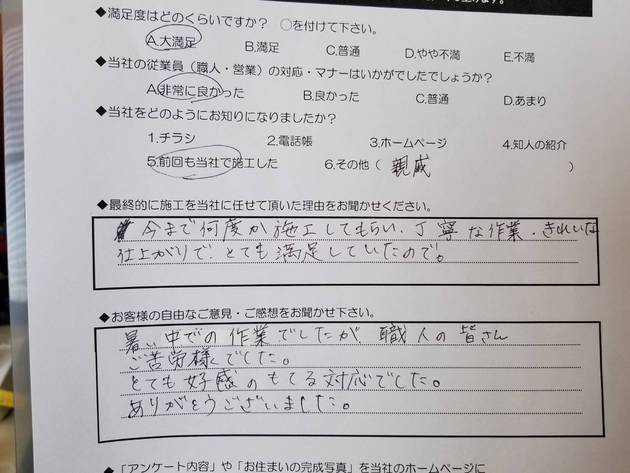 ◆満足度はどのくらいですか？ ○を付けて下さい。
A.大満足 B.満足 C.普通 D.やや不満 E.不満
◆当社の従業員（職人・営業）の対応・マナーはいかがでしたでしょうか？
A.非常に良かった B.良かった C.普通 D.あまり
◆当社をどのようにお知りになりましたか？
1.チラシ 2.電話帳 3.ホームページ 4.知人の紹介
5.前回も当社で施工した 6.その他（ 親戚 ）
◆最終的に施工を当社に任せて頂いた理由をお聞かせください。
今まで何度か施工してもらい、丁寧な作業・きれいな
仕上がりで、とても満足していたので。
◆お客様の自由なご意見・ご感想をお聞かせ下さい。
暑い中での作業でしたが、職人の皆さん
ご苦労様でした。
とても好感のもてる対応でした。
ありがとうございました。
◆「アンケート内容」や「お住まいの完成写真」を当社のホームページに